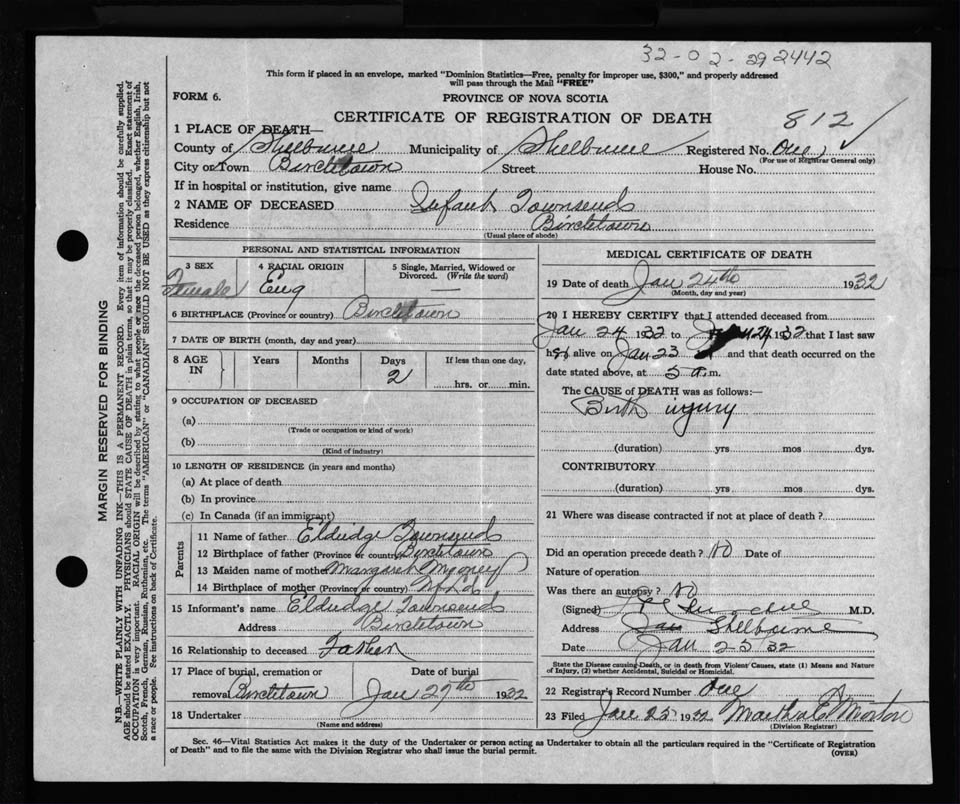 32-02-29 2442
This form if placed in an envelope, marked "Dominion Statistics—Free, penalty for improper use, $300," and properly addressed
will pass through the Mail "FREE"
FORM 6.
PROVINCE OF NOVA SCOTIA
CERTIFICATE OF REGISTRATION OF DEATH
812
1 PLACE OF DEATH—
County of Shelburne Municipality of Shelburne Registered No. One
(For use of Registrar General only)
City or Town Birchtown Street House No.
If in hospital or institution, give name
2 NAME OF DECEASED Infant Townsend
Residence Birchtown
(Usual place of abode)
PERSONAL AND STATISTICAL INFORMATION
3 SEX 4 RACIAL ORIGIN 5 Single, Married, Widowed or
Divorced. (Write the word)
Female Eng —
6 BIRTHPLACE (Province or country) Birchtown
7 DATE OF BIRTH (month, day and year)
8 AGE IN Years Months Days If less than one day,
2 hrs. or min.
9 OCCUPATION OF DECEASED
(a)
(Trade or occupation or kind of work)
(b)
(Kind of industry)
10 LENGTH OF RESIDENCE (in years and months)
(a) At place of death
(b) In province
(c) In Canada (if an immigrant)
Parents
11 Name of father Eldridge Townsend
12 Birthplace of father (Province or country) Birchtown
13 Maiden name of mother Margaret Mooney
14 Birthplace of mother (Province or country) Nfld
15 Informant's name Eldridge Townsend
Address Birchtown
16 Relationship to deceased Father
17 Place of burial, cremation or Date of burial
removal Birchtown Jan 27th 1932
18 Undertaker
(Name and address)
MEDICAL CERTIFICATE OF DEATH
19 Date of death Jan 24th 1932
(Month, day and year)
20 I HEREBY CERTIFY that I attended deceased from
Jan 24 1932 to 24 1932 that I last saw
h alive on Jan 23 and that death occurred on the
date stated above, at 5 a.m.
The CAUSE of DEATH was as follows:
Birth injury
(duration) yrs mos dys.
CONTRIBUTORY
(duration) yrs mos dys.
21 Where was disease contracted if not at place of death?
Did an operation precede death? No Date of
Nature of operation
Was there an autopsy? No
(Signed) M.D.
Address Shelburne
Date Jan 25 32
State the Disease causing Death, or in death from Violent Causes, state (1) Means and Nature
of Injury, (2) whether Accidental, Suicidal or Homicidal.
22 Registrar's Record Number One
23 Filed Jan 25 1932 Martha E
(Division Registrar)
Sec. 46—Vital Statistics Act makes it the duty of the Undertaker or person acting as Undertaker to obtain all the particulars required in the "Certificate of Registration
of Death" and to file the same with the Division Registrar who shall issue the burial permit.
(OVER)
MARGIN RESERVED FOR BINDING
N.B.—WRITE PLAINLY WITH UNFADING INK—THIS IS A PERMANENT RECORD. Every item of information should be carefully supplied.
AGE should be stated EXACTLY. PHYSICIANS should STATE CAUSE OF DEATH in plain terms, so that it may be properly classified. Exact statement of
OCCUPATION is very important. RACIAL ORIGIN will be described by stating to what people or race the deceased person belonged, whether English, Irish,
Scotch, French, German, Russian, Ruthenian, etc. The terms "AMERICAN" or "CANADIAN" SHOULD NOT BE USED as they express citizenship but not
a race or people. See instructions on back of Certificate.